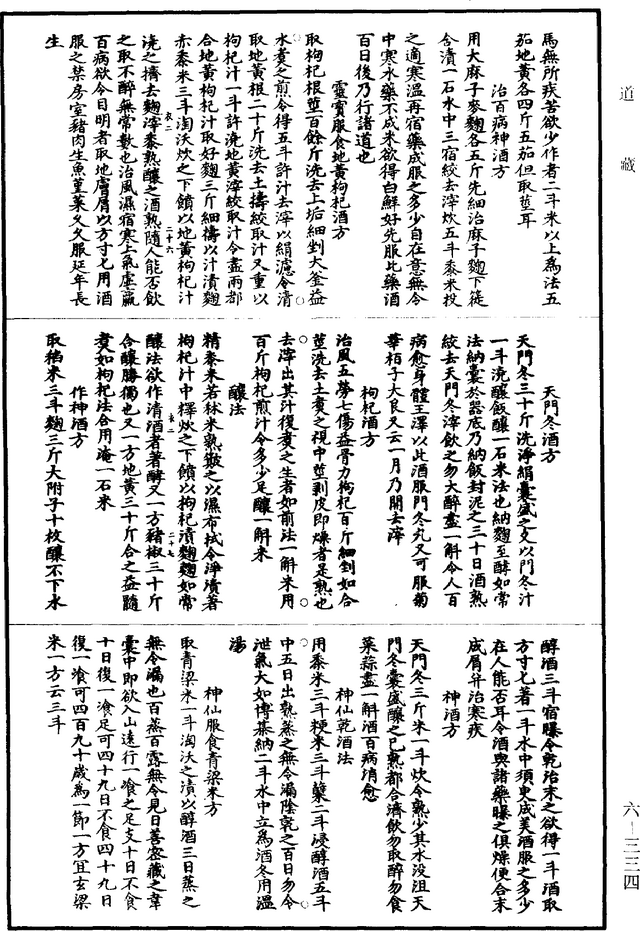 道藏
馬無所疾苦欲少作者二斗米以上為法五
茄地黃各四斤五茄但取莖耳
治百病神酒方
用大麻子麥麴各五斤先細治麻子麴下蓰
合漬一石水中三宿絞去滓炊五斗黍米投
之適寒溫再宿藥成服之多少自在意無令
中寒水藥不成米欲得白鮮好先服此藥酒
百日後乃行諸道也
靈寶服食地黃枸杞酒方
取枸杞根莖百餘斤洗去上垢細剉大釜益
水煑之煎令得五斗許汁去滓以絹濾令清
取地黃根二十斤洗去土擣絞取汁又重以
枸杞汁一斗許澆地黃滓絞取汁令盡兩都
合地黃枸杞汁取好麴三斤細擣以汁漬麴
赤黍米三斗淘沃炊之下饙以地黃枸杞汁
澆之擣去麴滓黍熟釀之酒熟隨人能否飲
之取不醉無常數也治風濕宿寒上氣虛羸
百病欲令目明者取地膚屑以方寸匕用酒
服之禁房室豬肉生魚菫菜又久服延年長
生
天門冬酒方
天門冬三十斤洗淨絹囊盛之又以門冬汁
一斗澆釀飯釀一石米法也納麴至醇如常
法納囊於器底乃納飯封泥之三十日酒熟
絞去天門冬滓飲之勿大醉盡一斛令人百
病愈身體玉澤以此酒服門冬丸又可服菊
華栢子大良又云一月乃開去滓
枸杞酒方
治風五勞七傷益骨力枸杞百斤細剉如合
莖洗去土煑之視中莖剝皮即燥者是熟也
去滓出其汁復煑之生者如前法一斛米用
百斤枸杞煎汁令多少足釀一斛米
釀法
精黍米若秫米熟䉛之以濕布拭令淨漬著
枸杞汁中釋炊之下饙以枸杞漬麴麴如常
釀法欲作清酒者著酵又一方豬椒三十斤
合釀勝獨也又一方地黃三十斤合之益髓
煑如枸杞法合用淹一石米
作神酒方
取秫米三斗麴三斤大附子十枚釀不下水
醇酒三斗宿曝令乾治末之欲得一斗酒取
方寸匕著一斗水中須臾成美酒服之多少
在人能否耳令酒與諸藥曝之俱燥便合末
成屑并治寒疾
神酒方
天門冬三斤米一斗炊令熟少其水沒沮天
門冬囊盛釀之已熟都合濟飲勿取醉勿食
菜蒜盡一斛酒百病消愈
神仙乾酒法
用黍米三斗粳米三斗糵二斗浸醇酒五斗
中五日出熟蒸之無令漏陰乾之百日勿令
泄氣大如博棊納二斗水中立為酒冬用溫
湯
神仙服食青梁米方
取青梁米一斗淘沃之漬以醇酒三日蒸之
無令漏也百蒸百露無令見日善密藏之韋
囊中即欲入山遠行一飡之足支十日不食
十日復一飡足可四十九日不食四十九日
復一飡可四百九十歲為一節一方宜玄梁
米一方云三斗
六-三三四